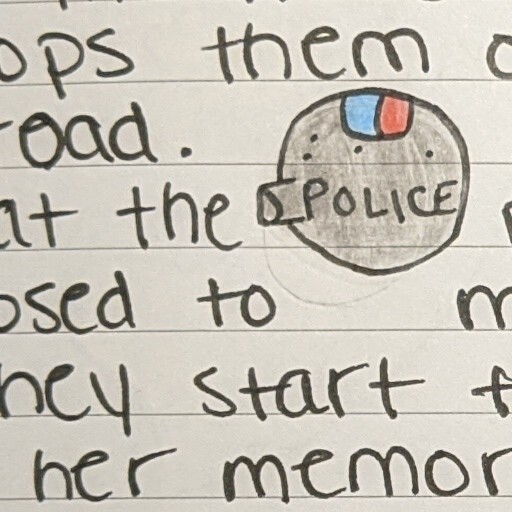 ops them
oad.
at the POLICE
osed to m
hey start t
her memor